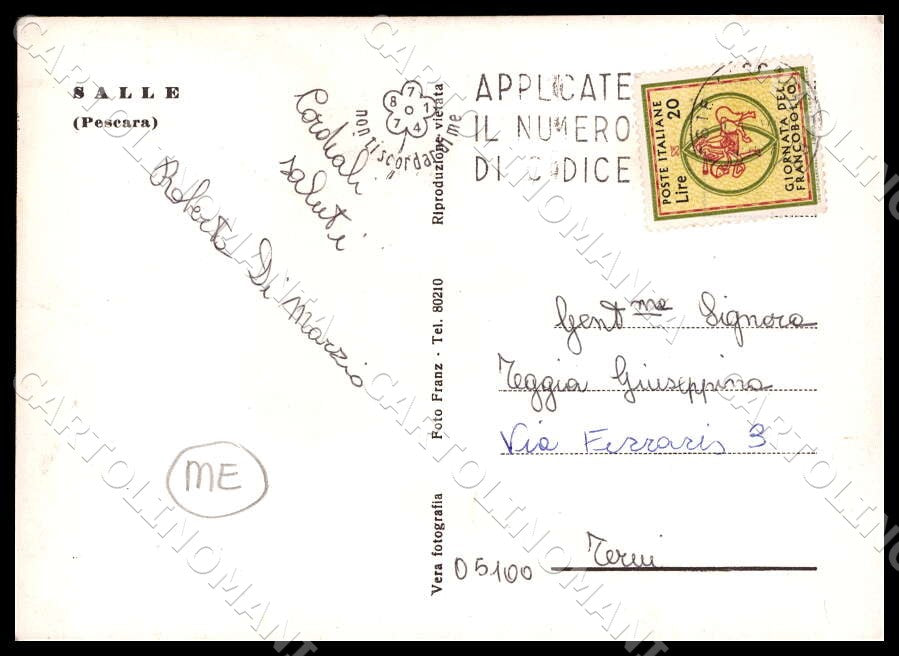 SALLE
(Pescara)
Cordiali
saluti
Roberto Di Marzio
ME
non ti scordar di me
8 7 1 0 7 4
APPLICATE
IL NUMERO
DI CODICE
POSTE ITALIANE
Lire 20
GIORNATA DEL
FRANCOBOLLO
Vera fotografia Foto Franz - Tel. 80210 Riproduzione vietata
Gent.me Signora
Teggia Giuseppina
Via Ferraris 3
05100 Terni
CARTOLINOMANIA